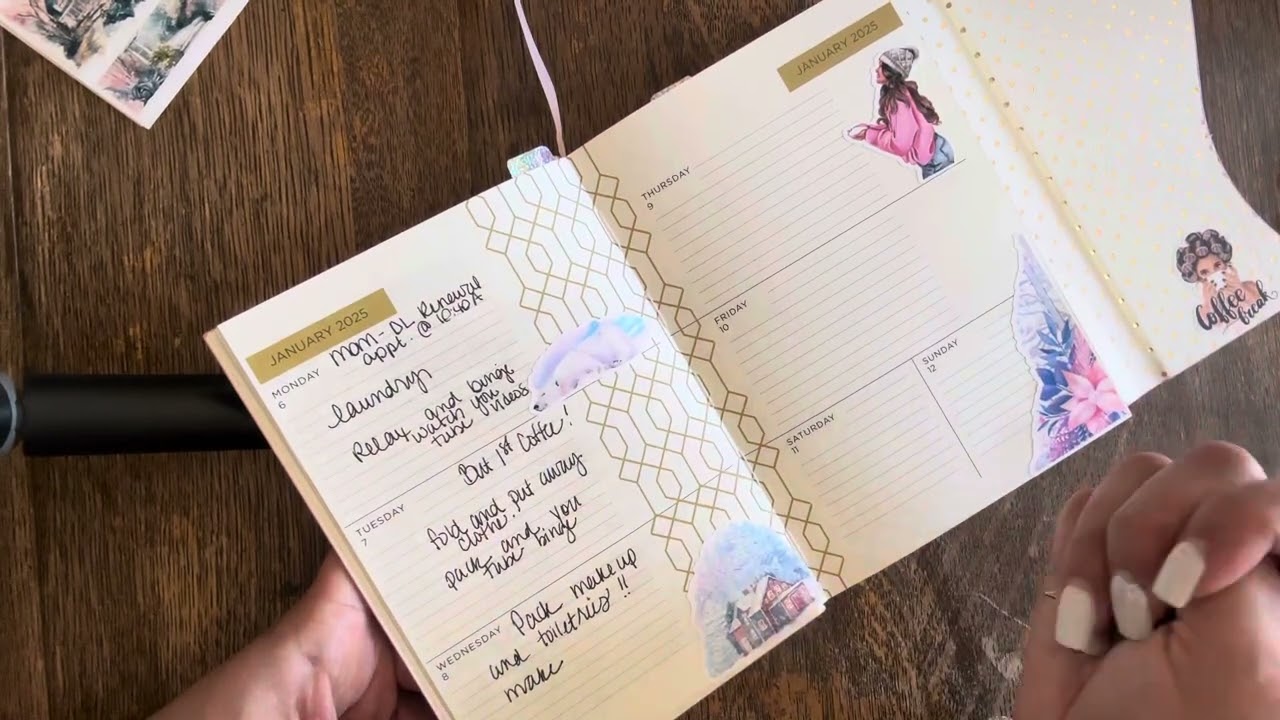 JANUARY 2025
MONDAY
6
mom - DL Renewal
appt. @ 10:40A
laundry
Relax and binge
watch you
tube videos
But 1st Coffee!
TUESDAY
7
fold and put away
clothes.
pack and you
tube binge
WEDNESDAY
8
Pack makeup
and toiletries!!
make
JANUARY 2025
THURSDAY
9
FRIDAY
10
SATURDAY
11
SUNDAY
12
Coffee
break